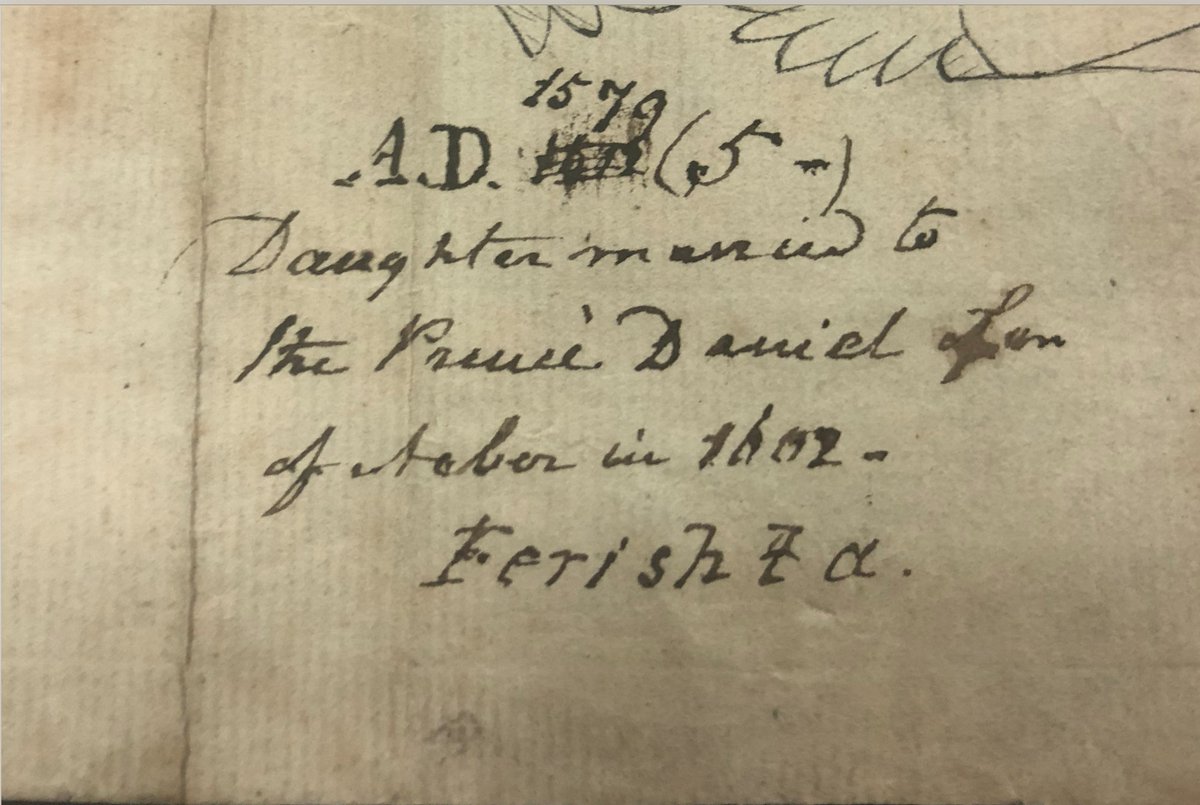 1579
A.D. (5 -)
Daughter married to
the Prince Daniel Son
of Acbar in 1602 -
Ferishta.